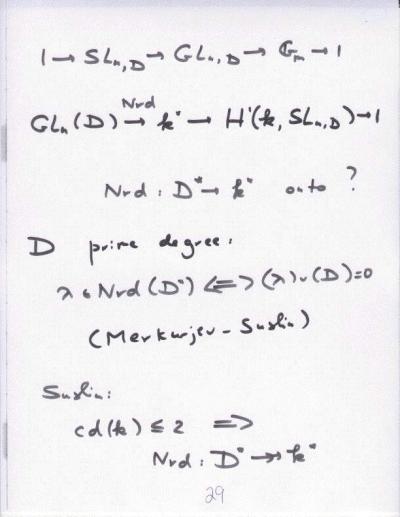 1 → SLn,D → GLn,D → Gm → 1
Nrd
GLn(D) → k* → H¹(k, SLn,D) → 1
Nrd : D* → k* onto ?
D prime degree:
λ ∈ Nrd(D*) <=> (λ) ∪ (D) = 0
(Merkurjev - Suslin)
Suslin:
cd(k) ≤ 2 =>
Nrd : D* ↠ k*
29